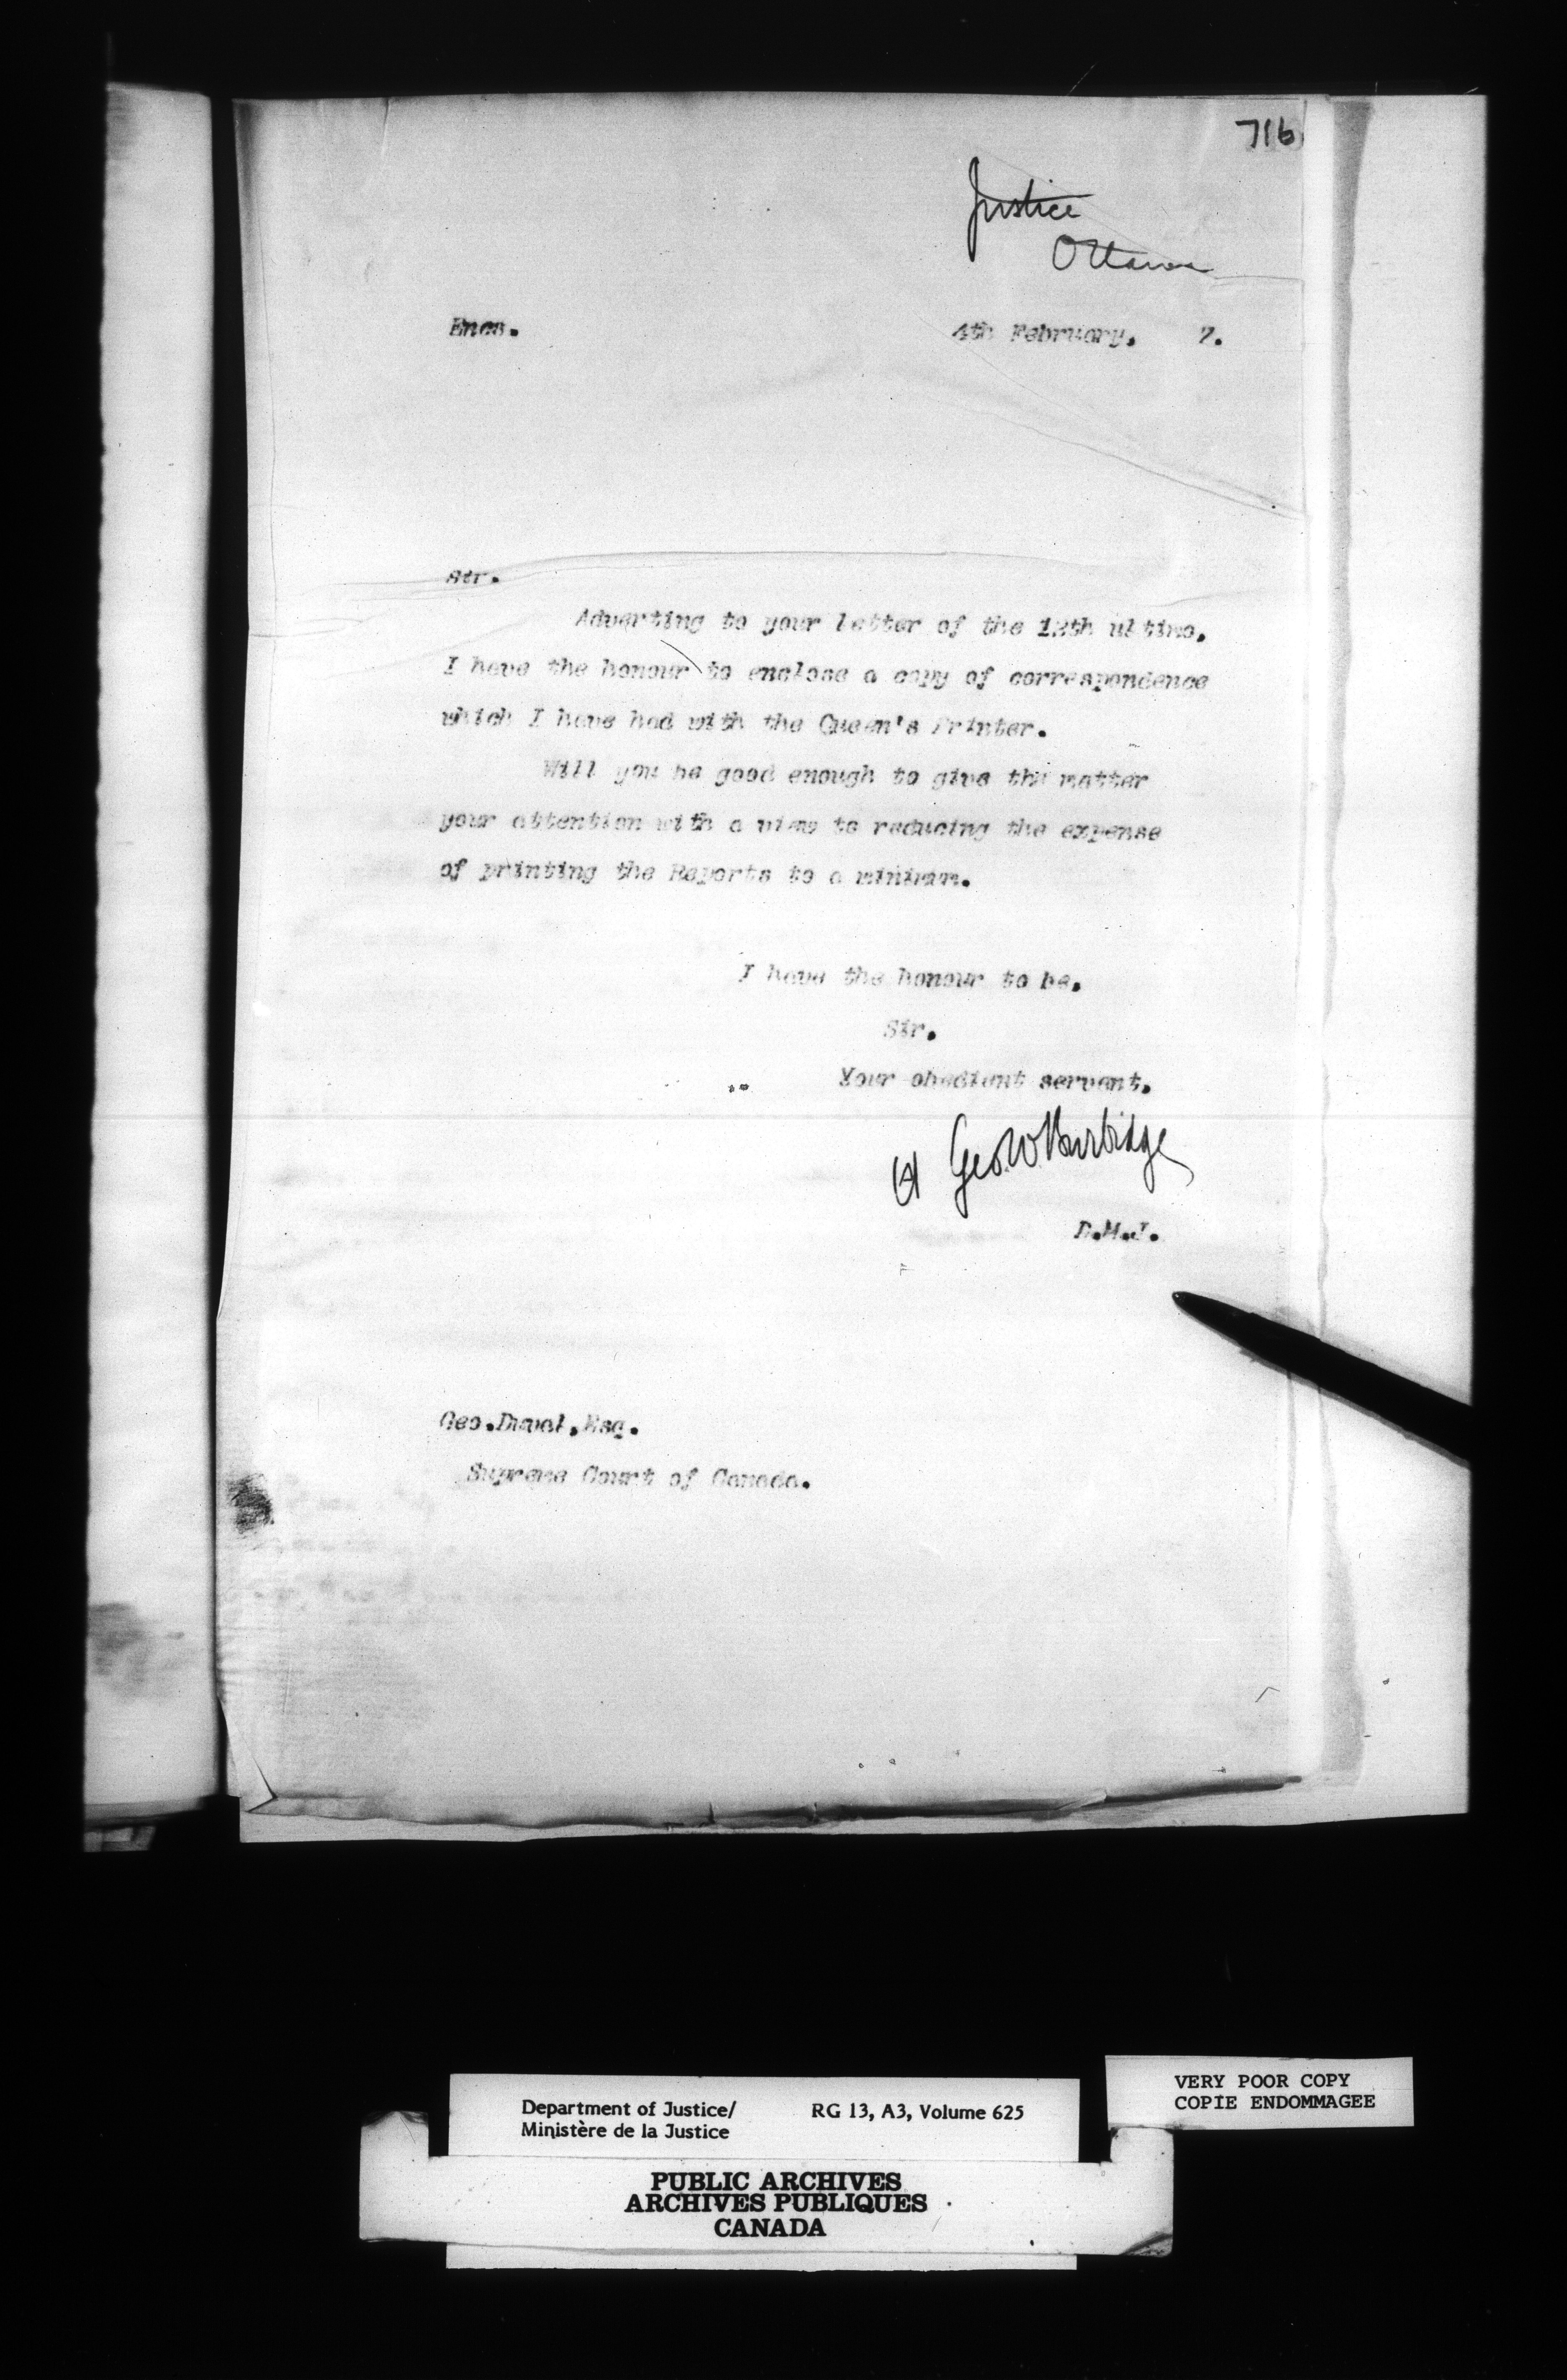 716
Justice
Ottawa
Encs.
4th February, 7.
Sir.
Adverting to your letter of the 12th ultimo,
I have the honour to enclose a copy of correspondence
which I have had with the Queen's Printer.
Will you be good enough to give the matter
your attention with a view to reducing the expense
of printing the Reports to a minimum.
I have the honour to be,
Sir.
Your obedient servant.
Geo W Burbidge
D.M.J.
Geo.Duval,Esq.
Supreme Court of Canada.
VERY POOR COPY
COPIE ENDOMMAGEE
Department of Justice/ RG 13, A3, Volume 625
Ministère de la Justice
PUBLIC ARCHIVES
ARCHIVES PUBLIQUES
CANADA